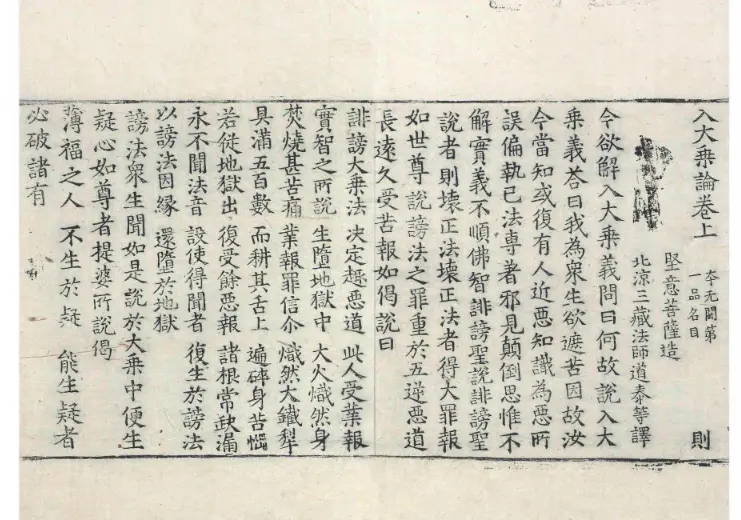 入大乗論卷上 本无開第一品名目 則
堅意菩薩造
北涼三藏法師道泰等譯
今欲解入大乗義問曰何故說入大
乗義荅曰我為衆生欲遮苦因故汝
今當知或復有人近惡知識為惡所
誤偏執己法專著邪見顛倒思惟不
解實義不順佛智誹謗聖說誹謗聖
說者則壞正法壞正法者得大罪報
如世尊說謗法之罪重於五逆惡道
長遠久受苦報如偈說曰
誹謗大乗法 决定趣惡道 此人受業報
實智之所說 生墮地獄中 大火熾然身
焚燒甚苦痛 業報罪信介 熾然大鐵犁
具滿五百數 而耕其舌上 遍碎身苦惱
若從地獄出 復受餘惡報 諸根常缺漏
永不聞法音 設使得聞者 復生於謗法
以謗法因縁 還墮於地獄
謗法衆生聞如是說於大乗中便生
疑心如尊者提婆所說偈
薄福之人 不生於疑 能生疑者
必破諸有